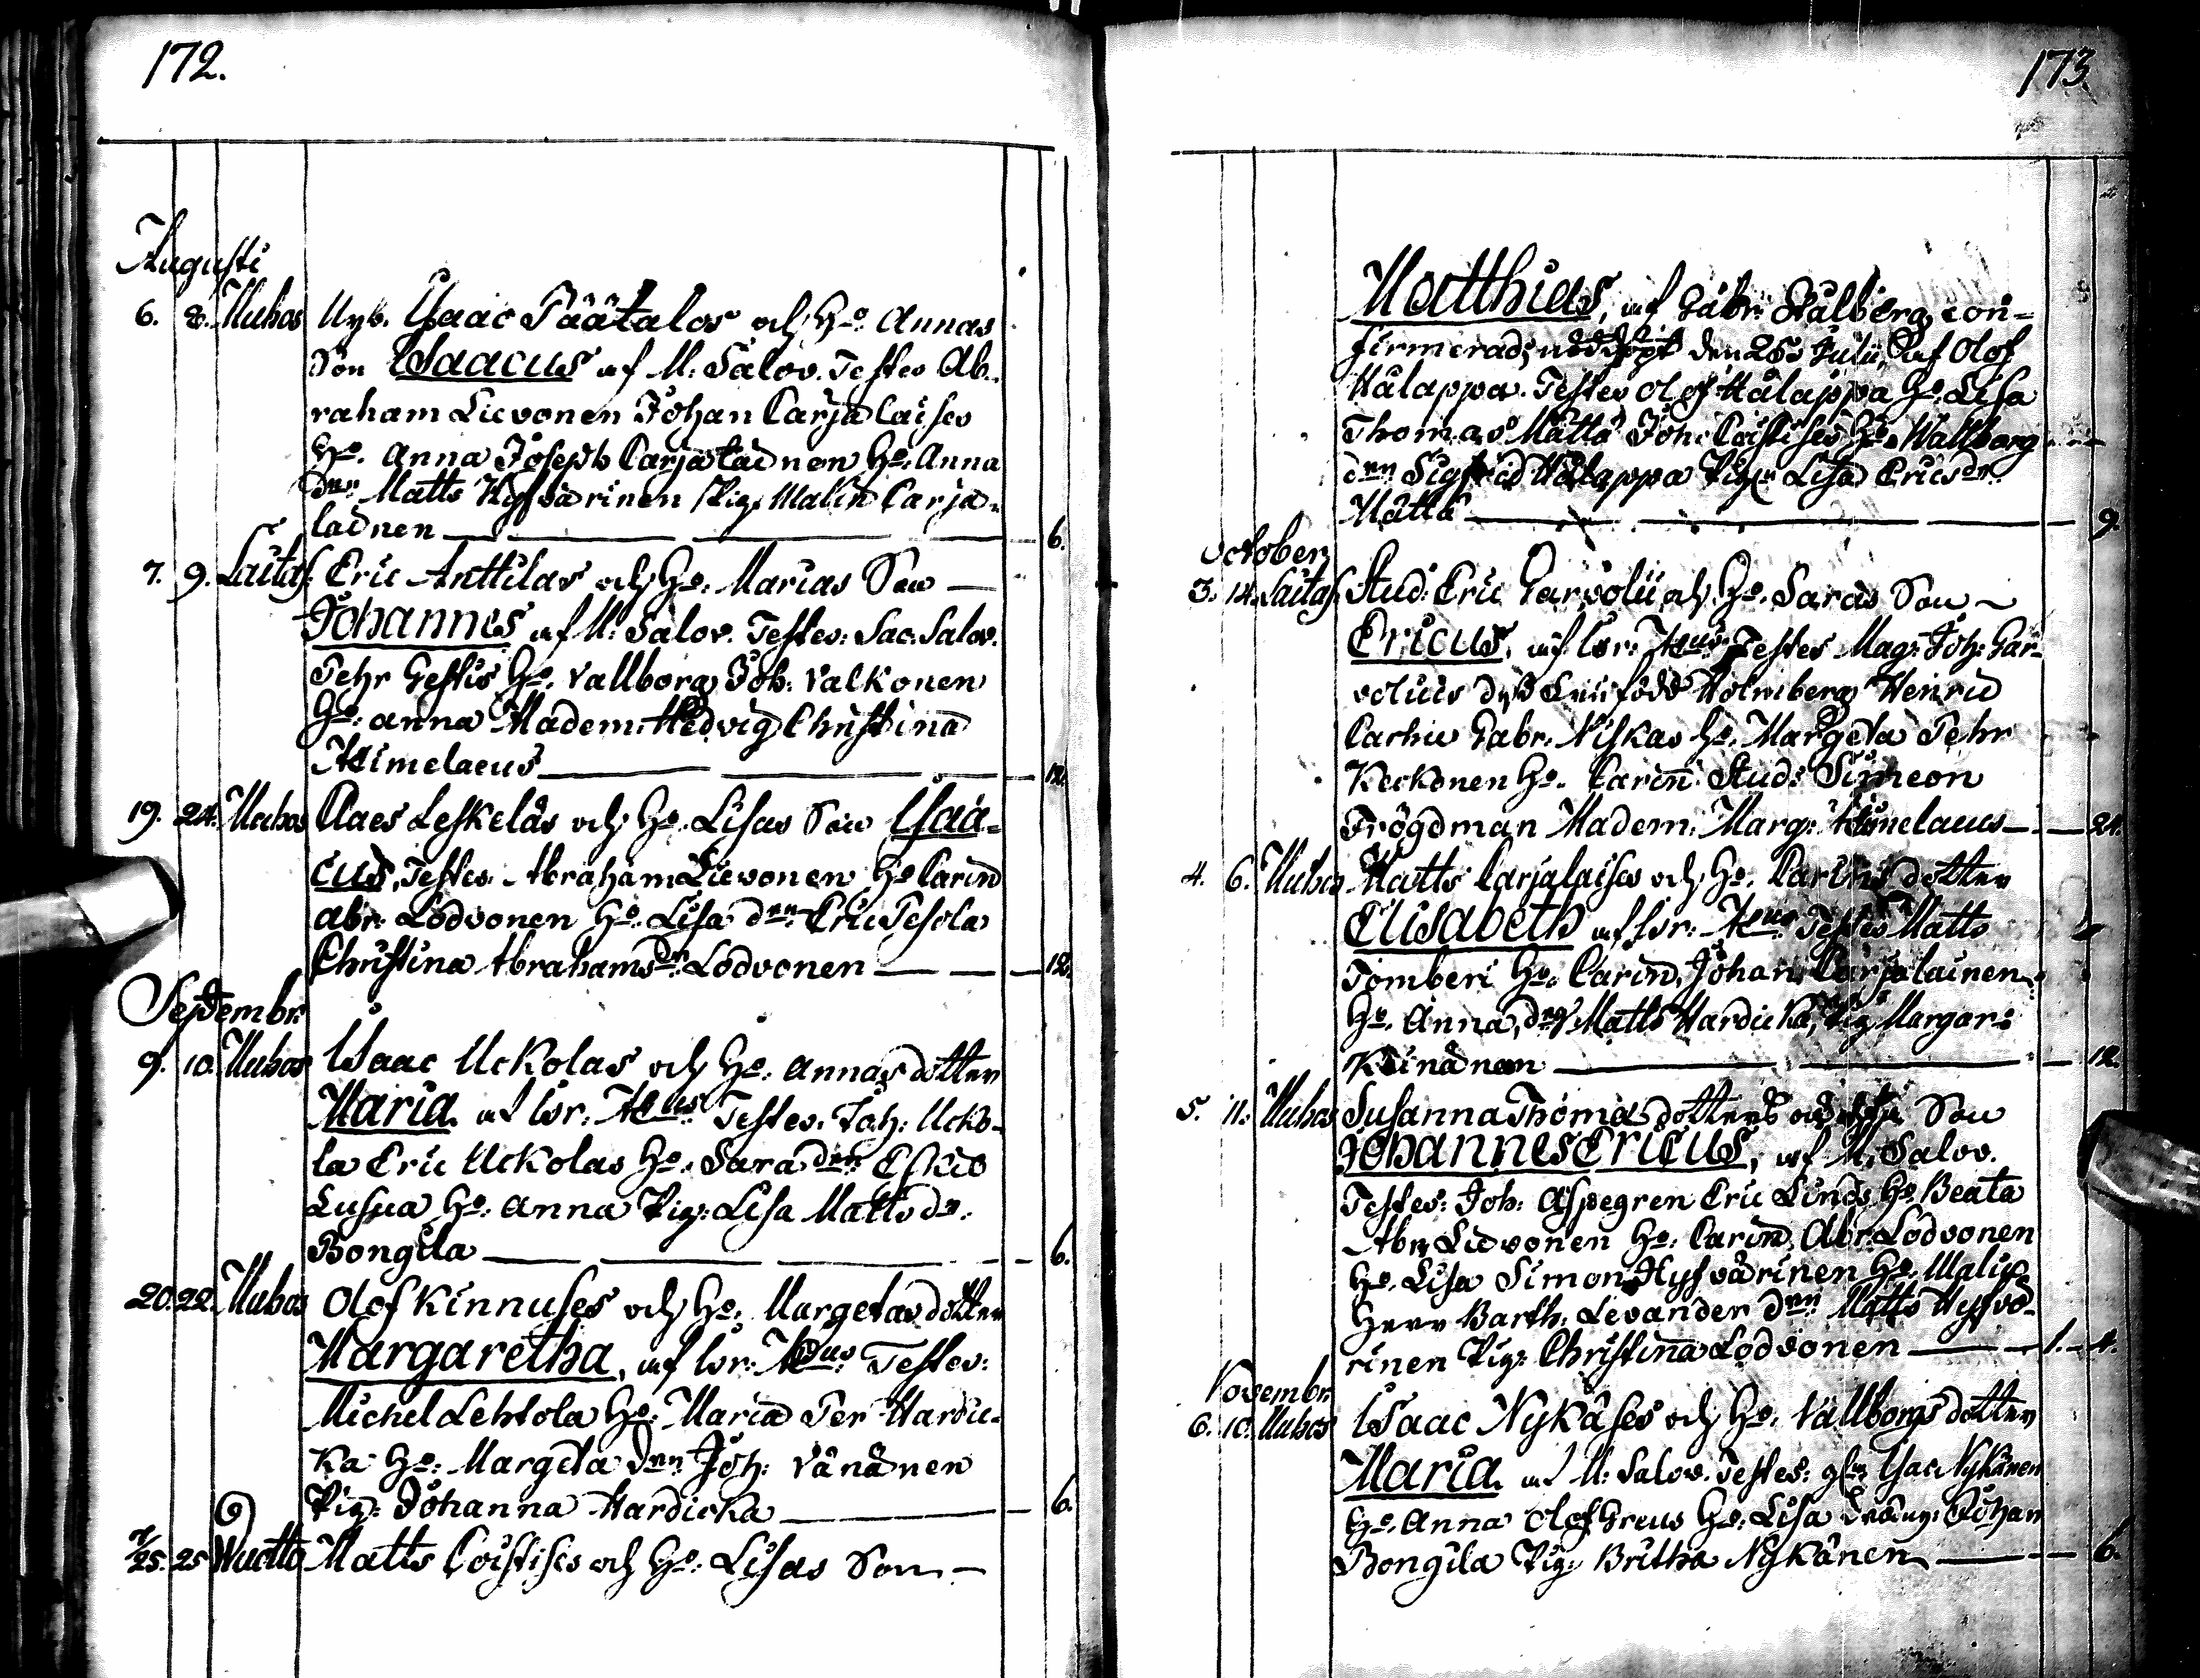 172.
Augusti
6. 8. Muhos Nyb. Isaac Päätalos och Ho. Annas
Son Isaacus af M: Salov. Testes Ab-
raham Lievonen Johan Carjalaises
Ho. Anna Joseph Carjalainen Ho. Anna
dnn Matts Hyfvärinen Pig. Malin Carja-
lainen 6.
7. 9. Laitas. Eric Anttilas och Ho: Marias Son
Johannes af M: Salov. Testes: Sac: Salov.
Pehr Gestis Ho. Vallborg Joh: Valkonen
Ho: Anna Madem: Hedvig Christina
Heimelaeus 12.
19. 24. Muhos Claes Leskeläs och Ho: Lisas Son Isaa-
cus, Testes. Abraham Lievonen Ho Carin
Abr: Lodvonen Ho: Lisa dnn Eric Pesola
Christina Abrahamsdr Lodvonen 12.
Septembr:
9. 10. Muhos Isaac Uckolas och Ho: Annas dotter
Maria af Cor: Testes. Joh: Ucko-
la Eric Uckolas Ho: Sara dnn Eskil
Lusua Ho: Anna Pig: Lisa Matts dr.
Bongila 6.
20. 22. Muhos Olof Kinnuses och Ho: Margetas dotter
Margaretha, af Cor: Testes:
Michel Lehtola Ho: Maria Per Hardic-
ka Ho: Margeta dnn Joh: Vänänen
Pig: Johanna Hardicka 6.
25. 25 Wuotto Matts Coistises och Ho: Lisas Son
173.
Matthias, af Gabr: Stålberg con-
firmerad, nöddöpt den 25 Julii, af Olof
Hälappa. Testes Olof Hälappa Ho: Lisa
Thomas Mätta Joh: Coistises Ho: Wallborg
dnn Sigfrid Hälappa Pign Lisa Ericsdr
Mätta 9.
October
3. 14. Laitas. Stud: Eric Garvolii och Ho. Saras Son
Ericus, af Cor: Testes Mag: Joh: Gar-
volius Holmberg Henric
Carhu Gabr. Niskas Ho. Margeta Pehr
Keckonen Ho. Carin Stud: Simeon
Frögdman Madem: Marg: Heimelaeus 24.
4. 6. Muhos Matts Carjalaises och Ho. Carins dotter
Elisabeth af Cor: Testes Matts
Tomberi Ho: Carin, Johan Carjalainen
Ho. Anna, dnn Matts Hardicka, Pig Margar:
Keinänen 12.
5. 11. Muhos Susanna Thomæ dotters oächta Son
Johannes Ericus, af M: Salov.
Testes: Joh: Aspegren Eric Linds Ho. Beata
Abr. Lievonen Ho: Carin, Abr: Lodvonen
Ho. Lisa Simon Hyfvärinen Ho. Malin
Herr Barth: Levander dnn Matts Hyfvä-
rinen Pig: Christina Lodvonen 1. 4.
Novembr:
6. 10. Muhos Isaac Nykäses och Ho. Vallborgs dotter
Maria af M: Salov. Testes: Isac Nykänen
Ho. Anna Olof Greus Ho: Lisa dräng: Johan
Bongila Pig: Britha Nykänen 6.